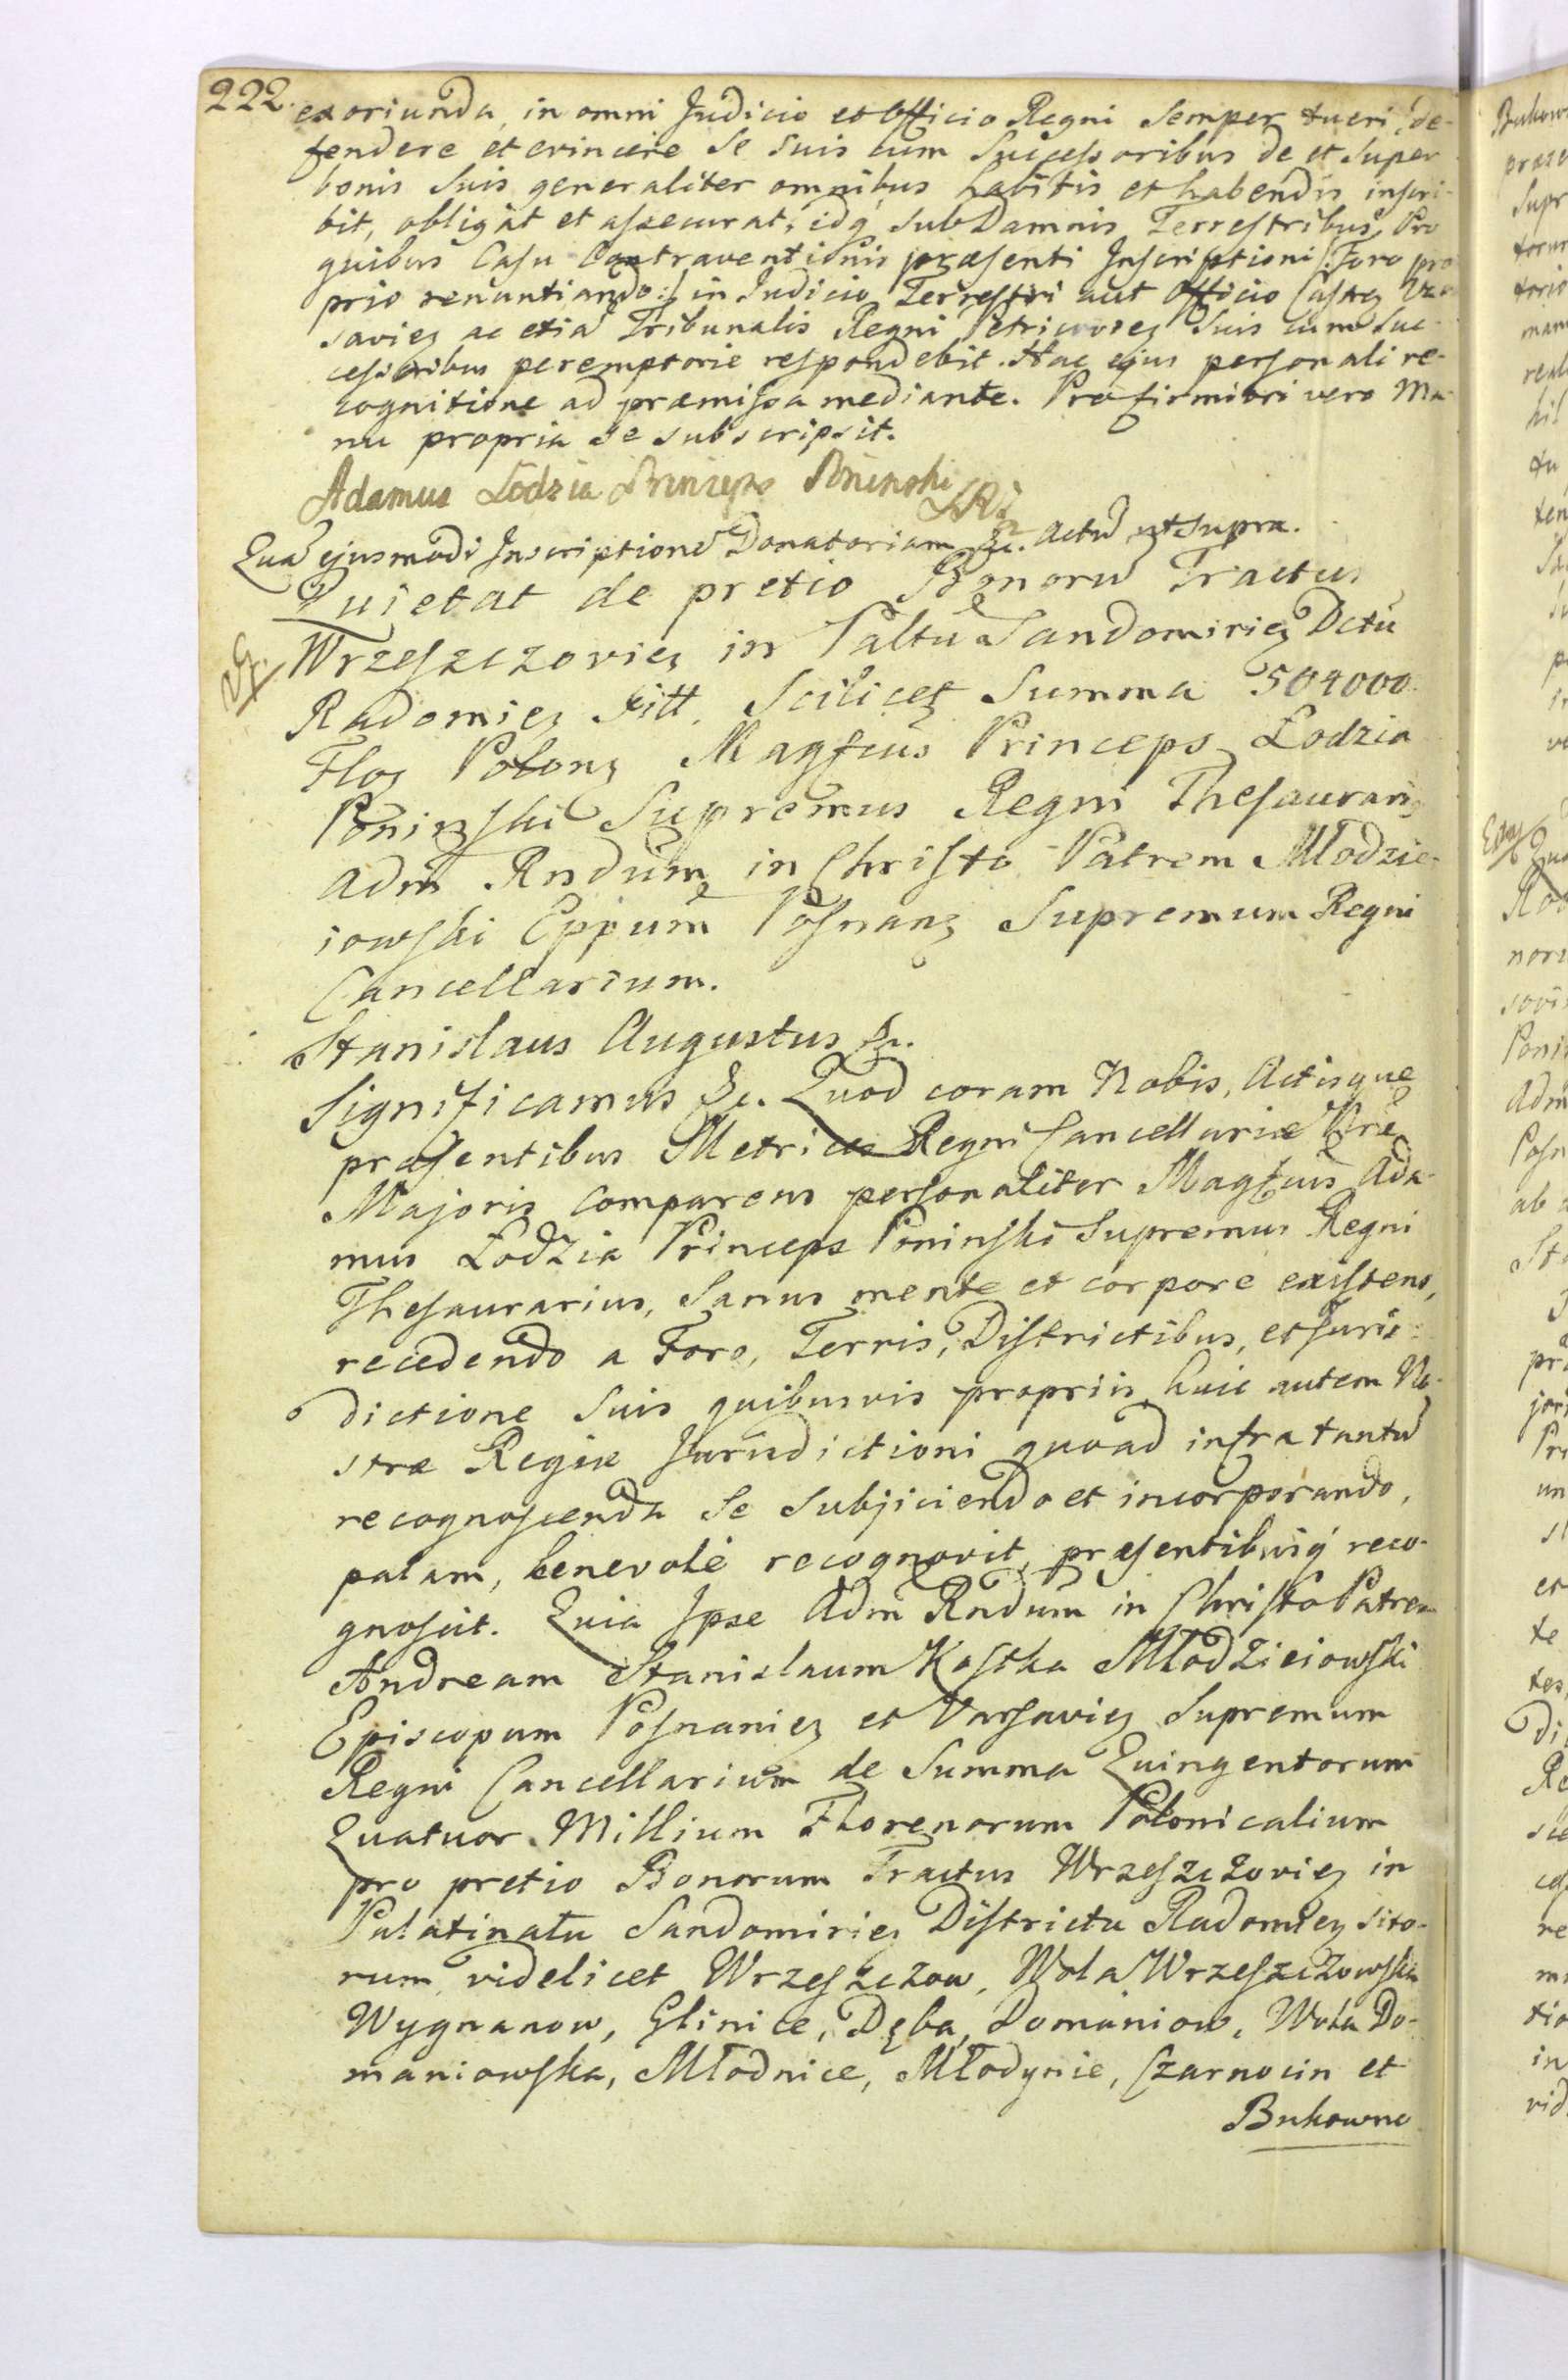 222. exoriunda, in omni Judicio et Officio Regni semper tueri, de-
fendere et evincere se suis cum Successoribus de et super
bonis suis generaliter omnibus habitis et habendis inscri-
bit, obligat et assecurat, idq sub Damnis Terrestribus, Pro
quibus Casu Contraventionis præsenti Inscriptioni /:Foro pro
prio renuntiando:/ in Judicio Terrestri aut Officio Castrez Var
saviez ac etiã Tribunalis Regni Petricoviez suis cum Suc-
cessoribus peremptorie respondebit. Hac ejus personali re-
cognitione ad præmissa mediante. Pro firmiori vero Ma-
nu propria se subscripsit.
Adamus Łodzia Princeps Poninski
Quã ejusmodi Inscriptionẽ Donatoriam &c. Actũ ut supra.
Quietat de pretio Bonorũ Tractus
Wrzeszczoviez in Paltũ Sandomiriez Dctũ
Radomiez sitt. Scilicet Summa 504000.
Floz Polonz Magfcus Princeps Łodzia
Poninski Supremus Regni Thesaurariz
Adm Rndum in Christo Patrem Młodzie-
iowski Eppum Posnanz Supremum Regni
Cancellarium.
Stanislaus Augustus &c.
Significamus &c. Quod coram Nobis, Actisque
præsentibus Metrices Regni Cancellariæ Nræ
Majoris comparens personaliter Magfcus Ada-
mus Łodzia Princeps Poninski Supremus Regni
Thesaurarius, sanus mente et corpore existens,
recedendo a Foro, Terris, Districtibus, et Juris-
dictione suis quibusvis propriis, huic autem No-
stræ Regiæ Jurisdictioni quoad infra tantũ
recognoscenda se subjiciendo et incorporando,
palam, benevolè recognovit, præsentibusq́ reco-
gnoscit. Quia Ipse Adm Rndum in Christo Patrem
Andream Stanislaum Kostka Młodzieiowski
Episcopum Posnaniez et Varsaviez Supremum
Regni Cancellarium de Summa Quingentorum
Quatuor Millium Florenorum Polonicalium
pro pretio Bonorum Tractus Wrzeszczoviez in
Palatinatu Sandomiriez Districtu Radomiez sito-
rum, videlicet Wrzeszczow, Wola Wrzeszczowska
Wygnanow, Glinice, Dęba, Domaniow, Wola Do-
maniowska, Młodnice, Młodynie, Czarnocin et
Bukowno